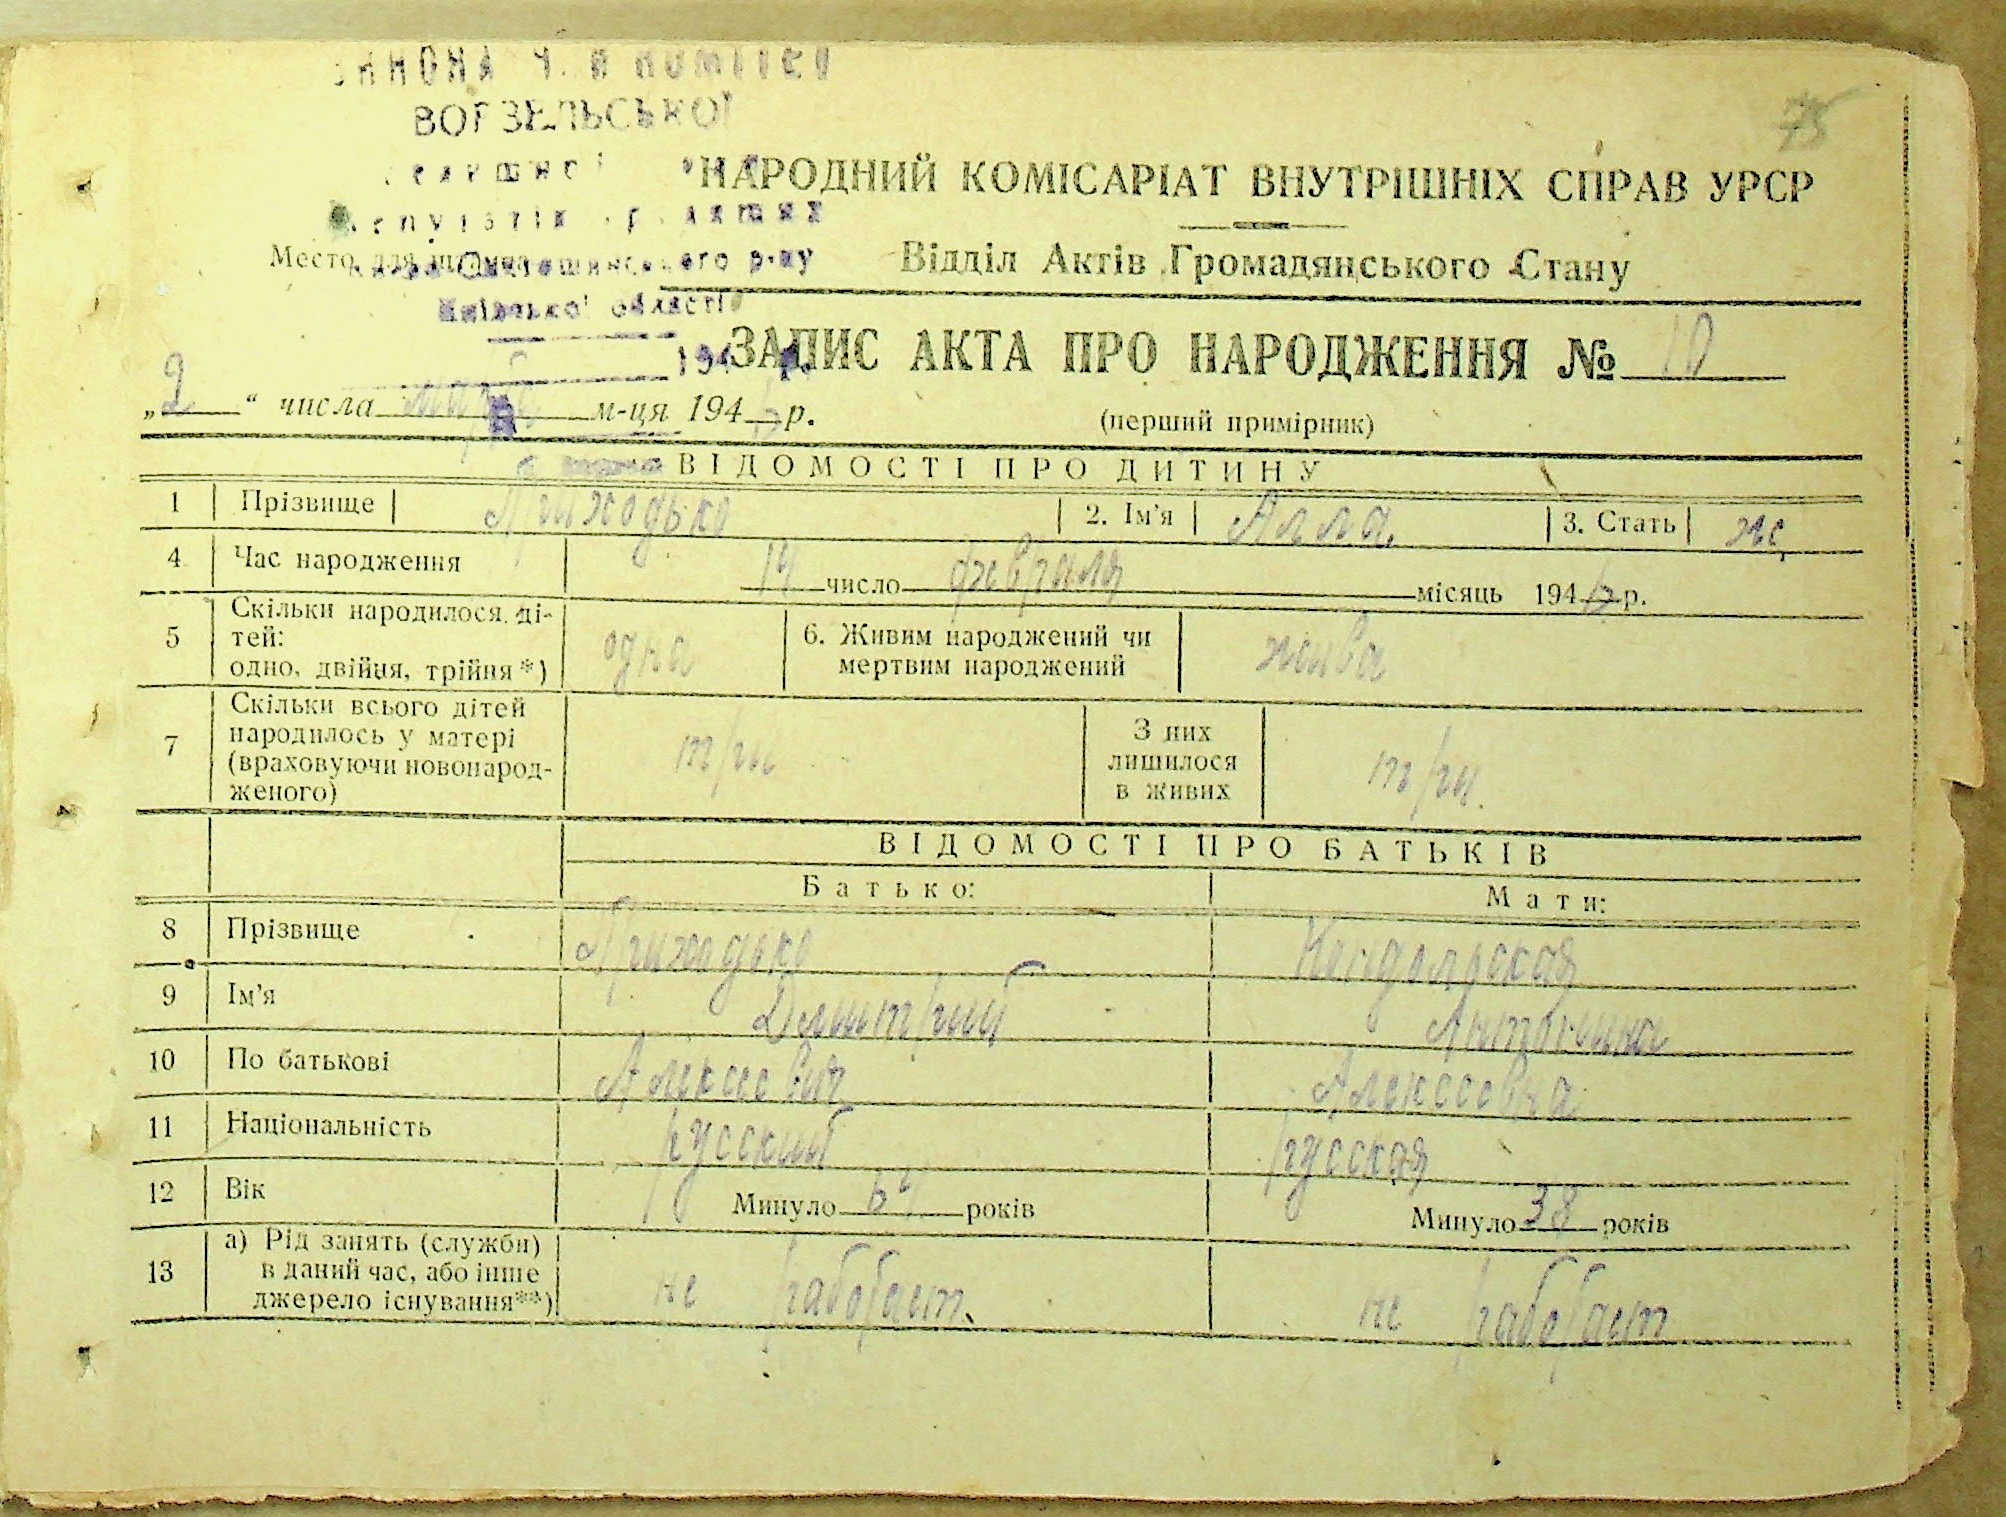 75
ВОРЗЕЛЬСЬКОЇ
НАРОДНИЙ КОМІСАРІАТ ВНУТРІШНІХ СПРАВ УРСР
Место для штампа
р-ну
Відділ Актів Громадянського Стану
Київської області
ЗАПИС АКТА ПРО НАРОДЖЕННЯ № 10
194 р.
„2“ числа марта м-ця 194 р.
(перший примірник)
ВІДОМОСТІ ПРО ДИТИНУ
1 Прізвище Приходько 2. Ім'я Алла. 3. Стать ж
4 Час народження 14 число февраля місяць 194 р.
5 Скільки народилося ді-
тей:
одно, двійня, трійня*) одна
6. Живим народжений чи
мертвим народжений жива
7 Скільки всього дітей
народилось у матері
(враховуючи новонарод-
женого) три
З них
лишилося
в живих три.
ВІДОМОСТІ ПРО БАТЬКІВ
Батько: Мати:
8 Прізвище Приходько
9 Ім'я Дмитрий Антонина
10 По батькові Алексеевич Алексеевна
11 Національність русский русская
12 Вік Минуло 64 років Минуло 38 років
13 а) Рід занять (служби)
в даний час, або інше
джерело існування**) не работает. не работает